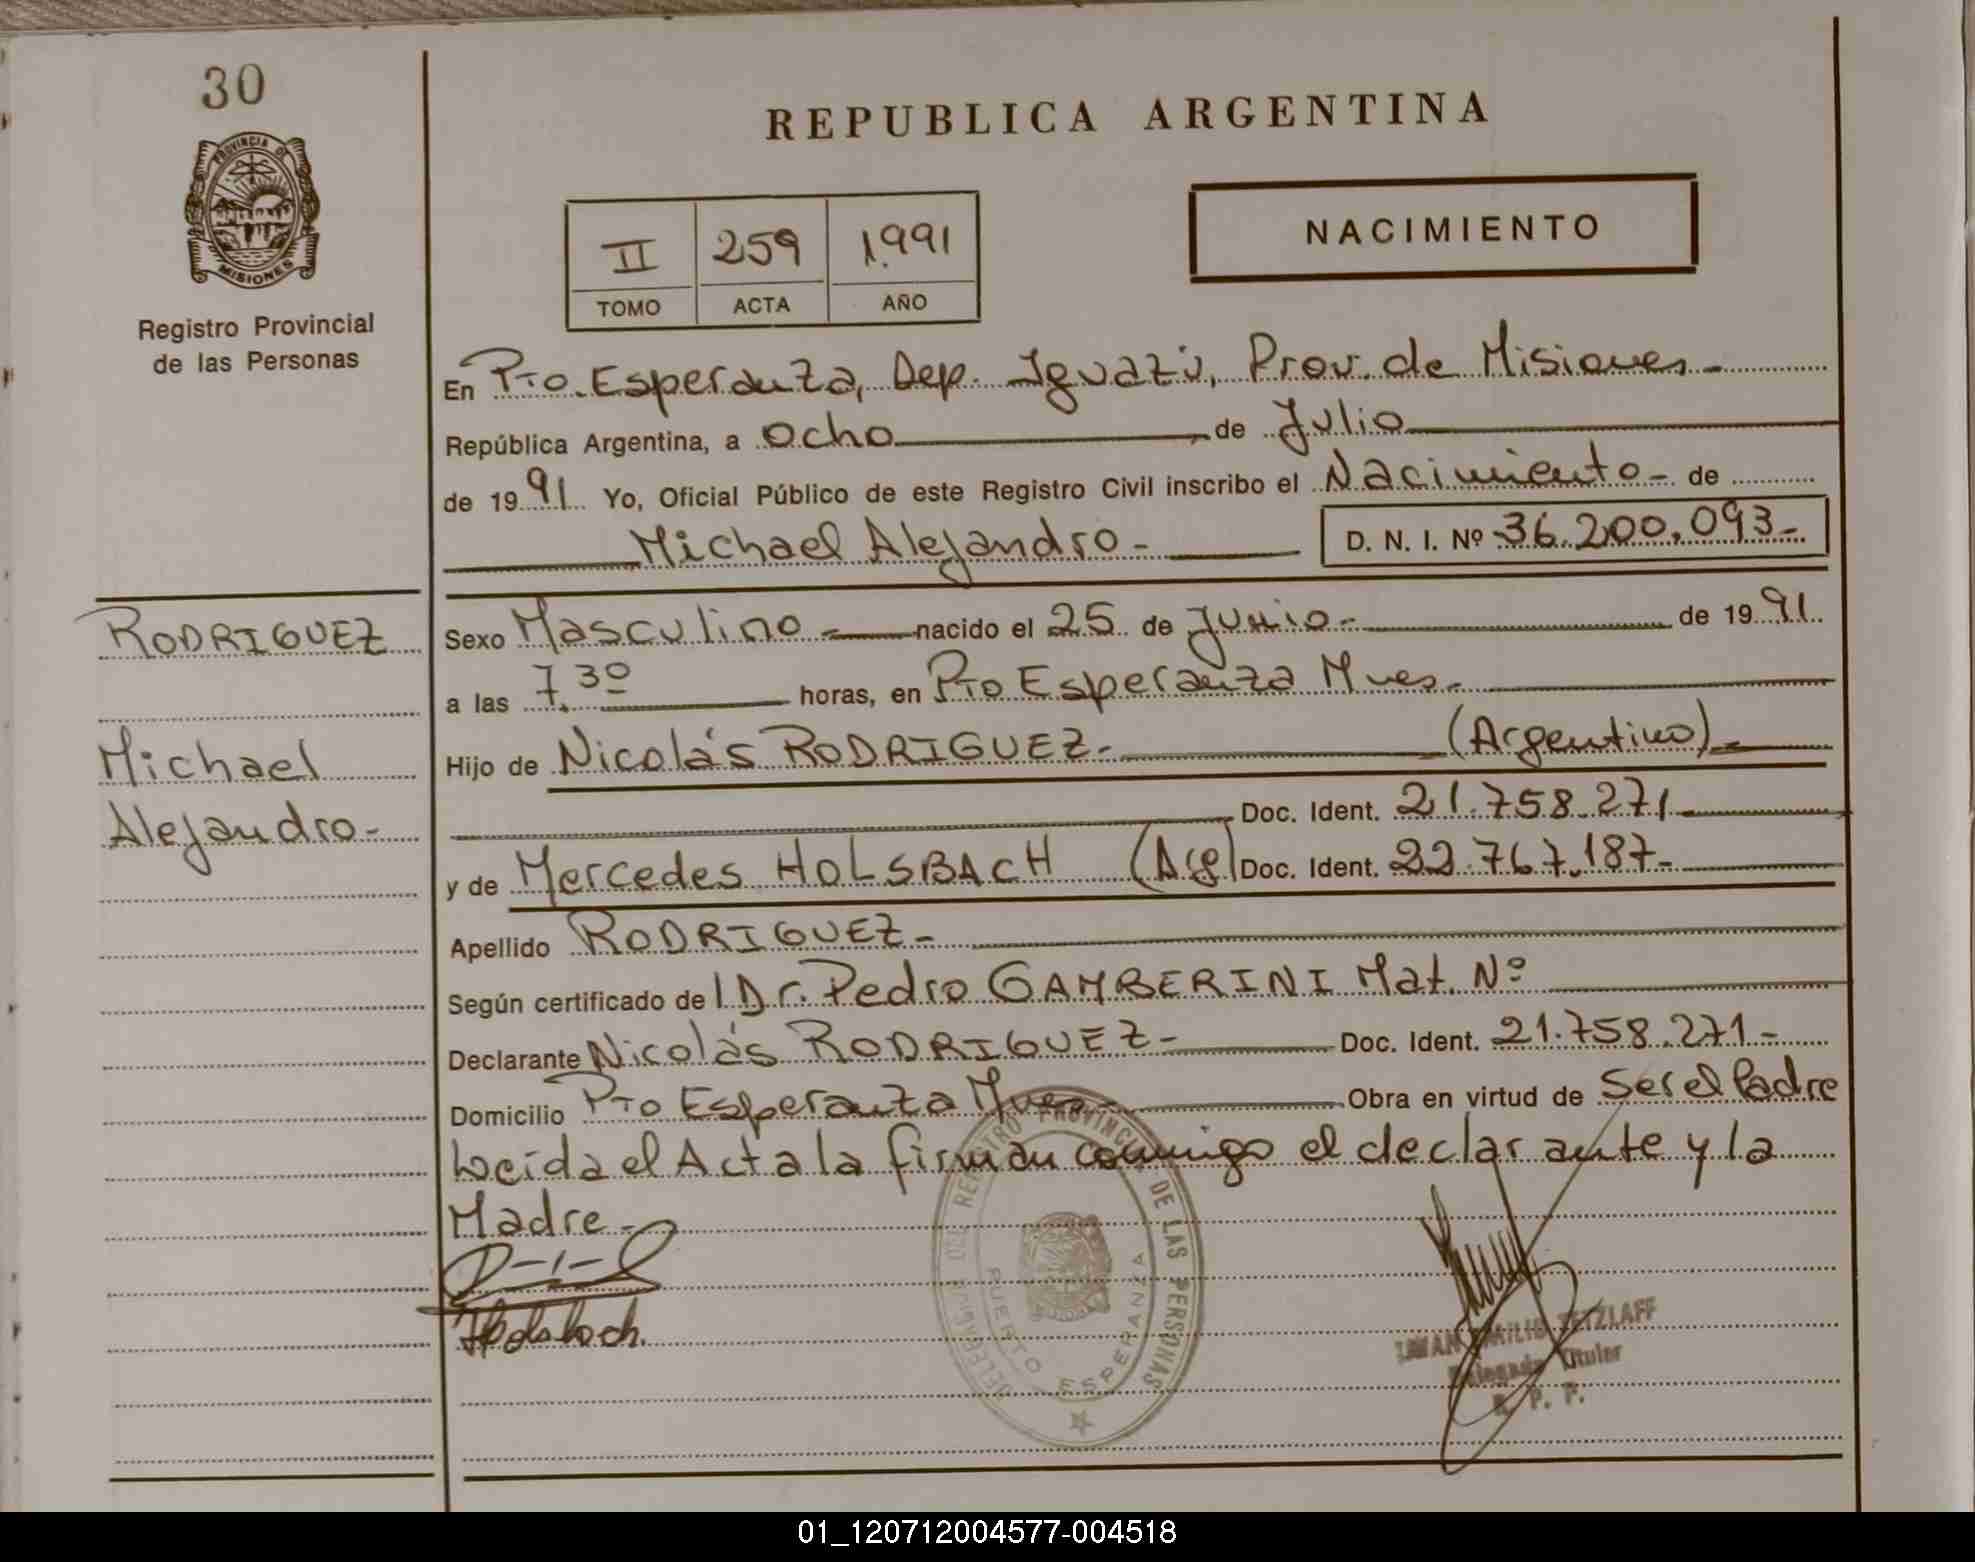 30
REPUBLICA ARGENTINA
PROVINCIA DE
MISIONES
Registro Provincial
de las Personas
II 259 1.991
TOMO ACTA AÑO
NACIMIENTO
En Pto. Esperanza, Dep. Iguazú, Prov. de Misiones -
República Argentina, a ocho de Julio
de 1991 Yo, Oficial Público de este Registro Civil inscribo el Nacimiento - de
Michael Alejandro - D. N. I. Nº 36.200.093-
RODRIGUEZ
Michael
Alejandro-
Sexo Masculino - nacido el 25 de Junio - de 1991
a las 7.30 horas, en Pto Esperanza Mnes.
Hijo de Nicolás RODRIGUEZ- (Argentino) -
Doc. Ident. 21.758.271-
y de Mercedes HOLSBACH (Arg) Doc. Ident. 22.767.187-
Apellido RODRIGUEZ -
Según certificado de l Dr. Pedro GAMBERINI Mat. Nº
Declarante Nicolás RODRIGUEZ - Doc. Ident. 21.758.271-
Domicilio Pto Esperanza Mnes - Obra en virtud de Ser el Padre
Leída el Acta la firman conmigo el declarante y la
Madre -
Holsbach.
DELEGACION DEL REGISTRO PROVINCIAL DE LAS PERSONAS
PUERTO ESPERANZA
EMILIO TETZLAFF
Delegado Titular
R. P. P.
01_120712004577-004518